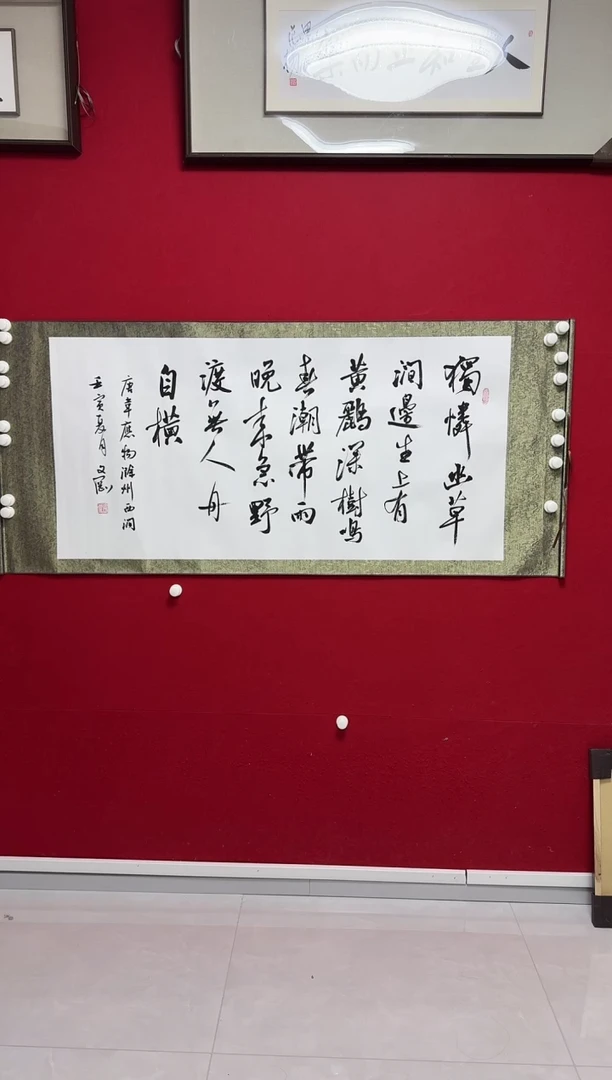 獨憐幽草
澗邊生上有
黄鸝深樹鳴
春潮帶雨
晚來急野
渡無人舟
自橫
唐韋應物滁州西澗
壬寅夏月